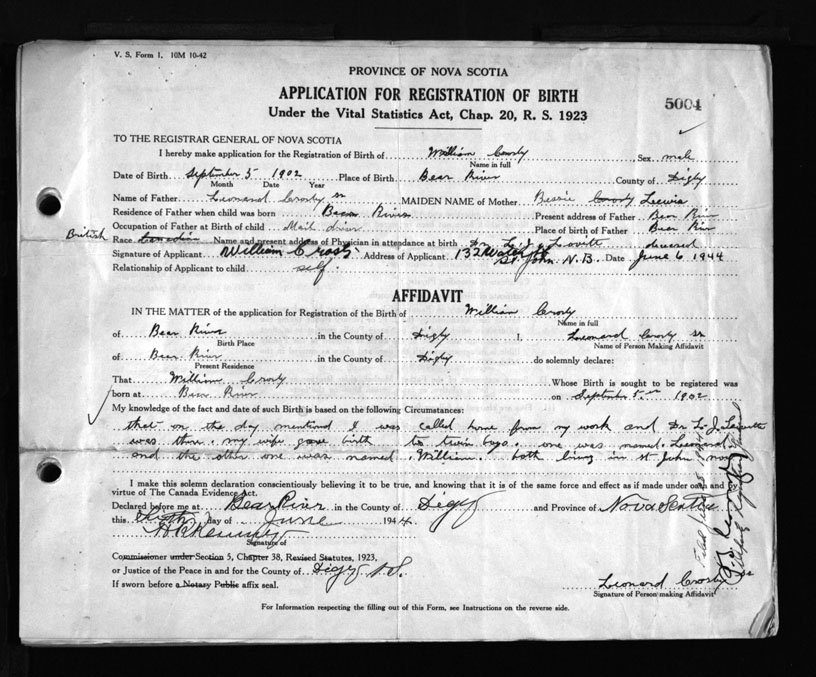 V. S. Form 1. 10M 10-42
PROVINCE OF NOVA SCOTIA
APPLICATION FOR REGISTRATION OF BIRTH
5004
Under the Vital Statistics Act, Chap. 20, R. S. 1923
TO THE REGISTRAR GENERAL OF NOVA SCOTIA
I hereby make application for the Registration of Birth of William Crosby, Sex male
Name in full
Date of Birth September 5 1902 Place of Birth Bear River County of Digby
Month Date Year
Name of Father Leonard Crosby sr MAIDEN NAME of Mother Bessie Crosby
Residence of Father when child was born Bear River Present address of Father Bear River
Occupation of Father at Birth of child Mail driver Place of birth of Father Bear River
British Race Canadian Name and present address of Physician in attendance at birth Dr. L. J. Lovitt deceased
Signature of Applicant William Crosby Address of Applicant 132 St. John N.B. Date June 6 1944
Relationship of Applicant to child self.
AFFIDAVIT
IN THE MATTER of the application for Registration of the Birth of William Crosby
Name in full
of Bear River in the County of Digby I, Leonard Crosby sr
Birth Place Name of Person Making Affidavit
of Bear River in the County of Digby do solemnly declare:
Present Residence
That William Crosby Whose Birth is sought to be registered was
born at Bear River on September 5 1902
My knowledge of the fact and date of such Birth is based on the following Circumstances:
that on the day mentioned I was called home from my work and Dr L. J. Lovitt
was there. my wife gave birth to twin boys. one was named. Leonard.
and the other one was named. William. both living in st John now
I make this solemn declaration conscientiously believing it to be true, and knowing that it is of the same force and effect as if made under oath and by
virtue of The Canada Evidence Act.
Declared before me at Bear River in the County of Digby and Province of Nova Scotia
this day of June 1944.
Signature of
Commissioner under Section 5, Chapter 38, Revised Statutes, 1923,
or Justice of the Peace in and for the County of Digby N.S.
If sworn before a Notary Public affix seal.
Leonard Crosby sr
Signature of Person making Affidavit
For Information respecting the filling out of this Form, see Instructions on the reverse side.